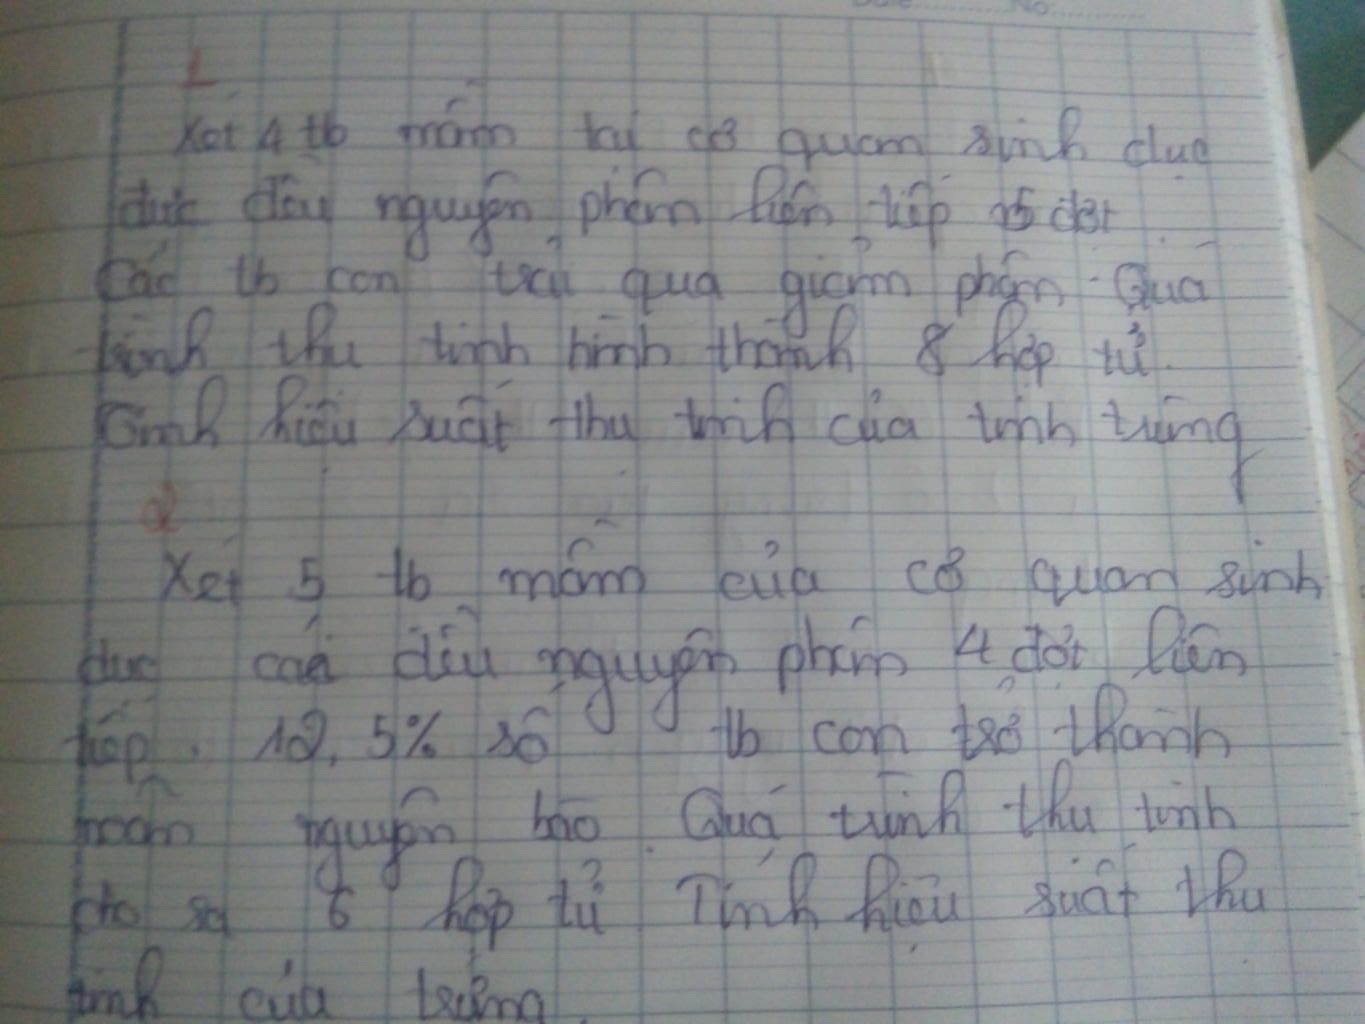 No
1
Xét 4 tb mầm tại cơ quan sinh dục
đực đều nguyên phân liên tiếp 5 đợt
Các tb con trải qua giảm phân. Quá
trình thụ tinh hình thành 8 hợp tử.
Tính hiệu suất thụ tinh của tinh trùng
2
Xét 5 tb mầm của cơ quan sinh
dục cái đều nguyên phân 4 đợt liên
tiếp. 12,5% số tb con trở thành
noãn nguyên bào. Quá trình thụ tinh
cho ra 6 hợp tử Tính hiệu suất thụ
tinh của trứng.